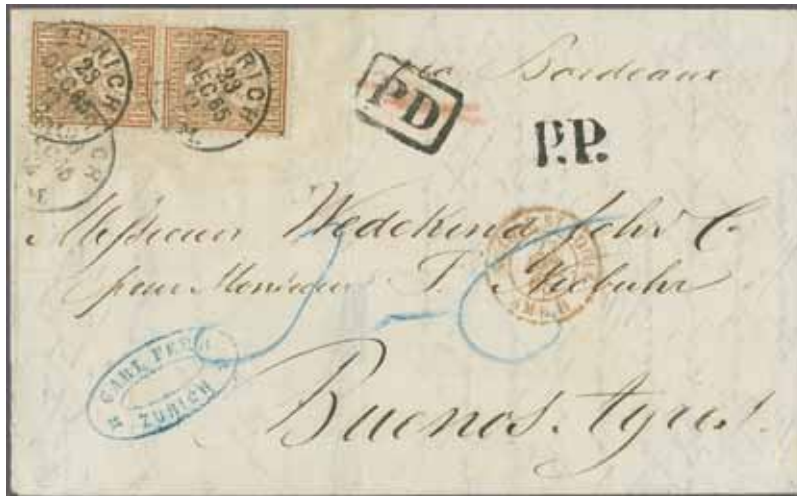 ZURICH
23
DEC 65
12
ZURICH
23
DEC 65
12
via Bordeaux
PD
P.P.
Messieurs Wedekind Fehr C.
pour Monsieur F. Niebuhr
CARL FE
ZÜRICH
Buenos-Ayres.